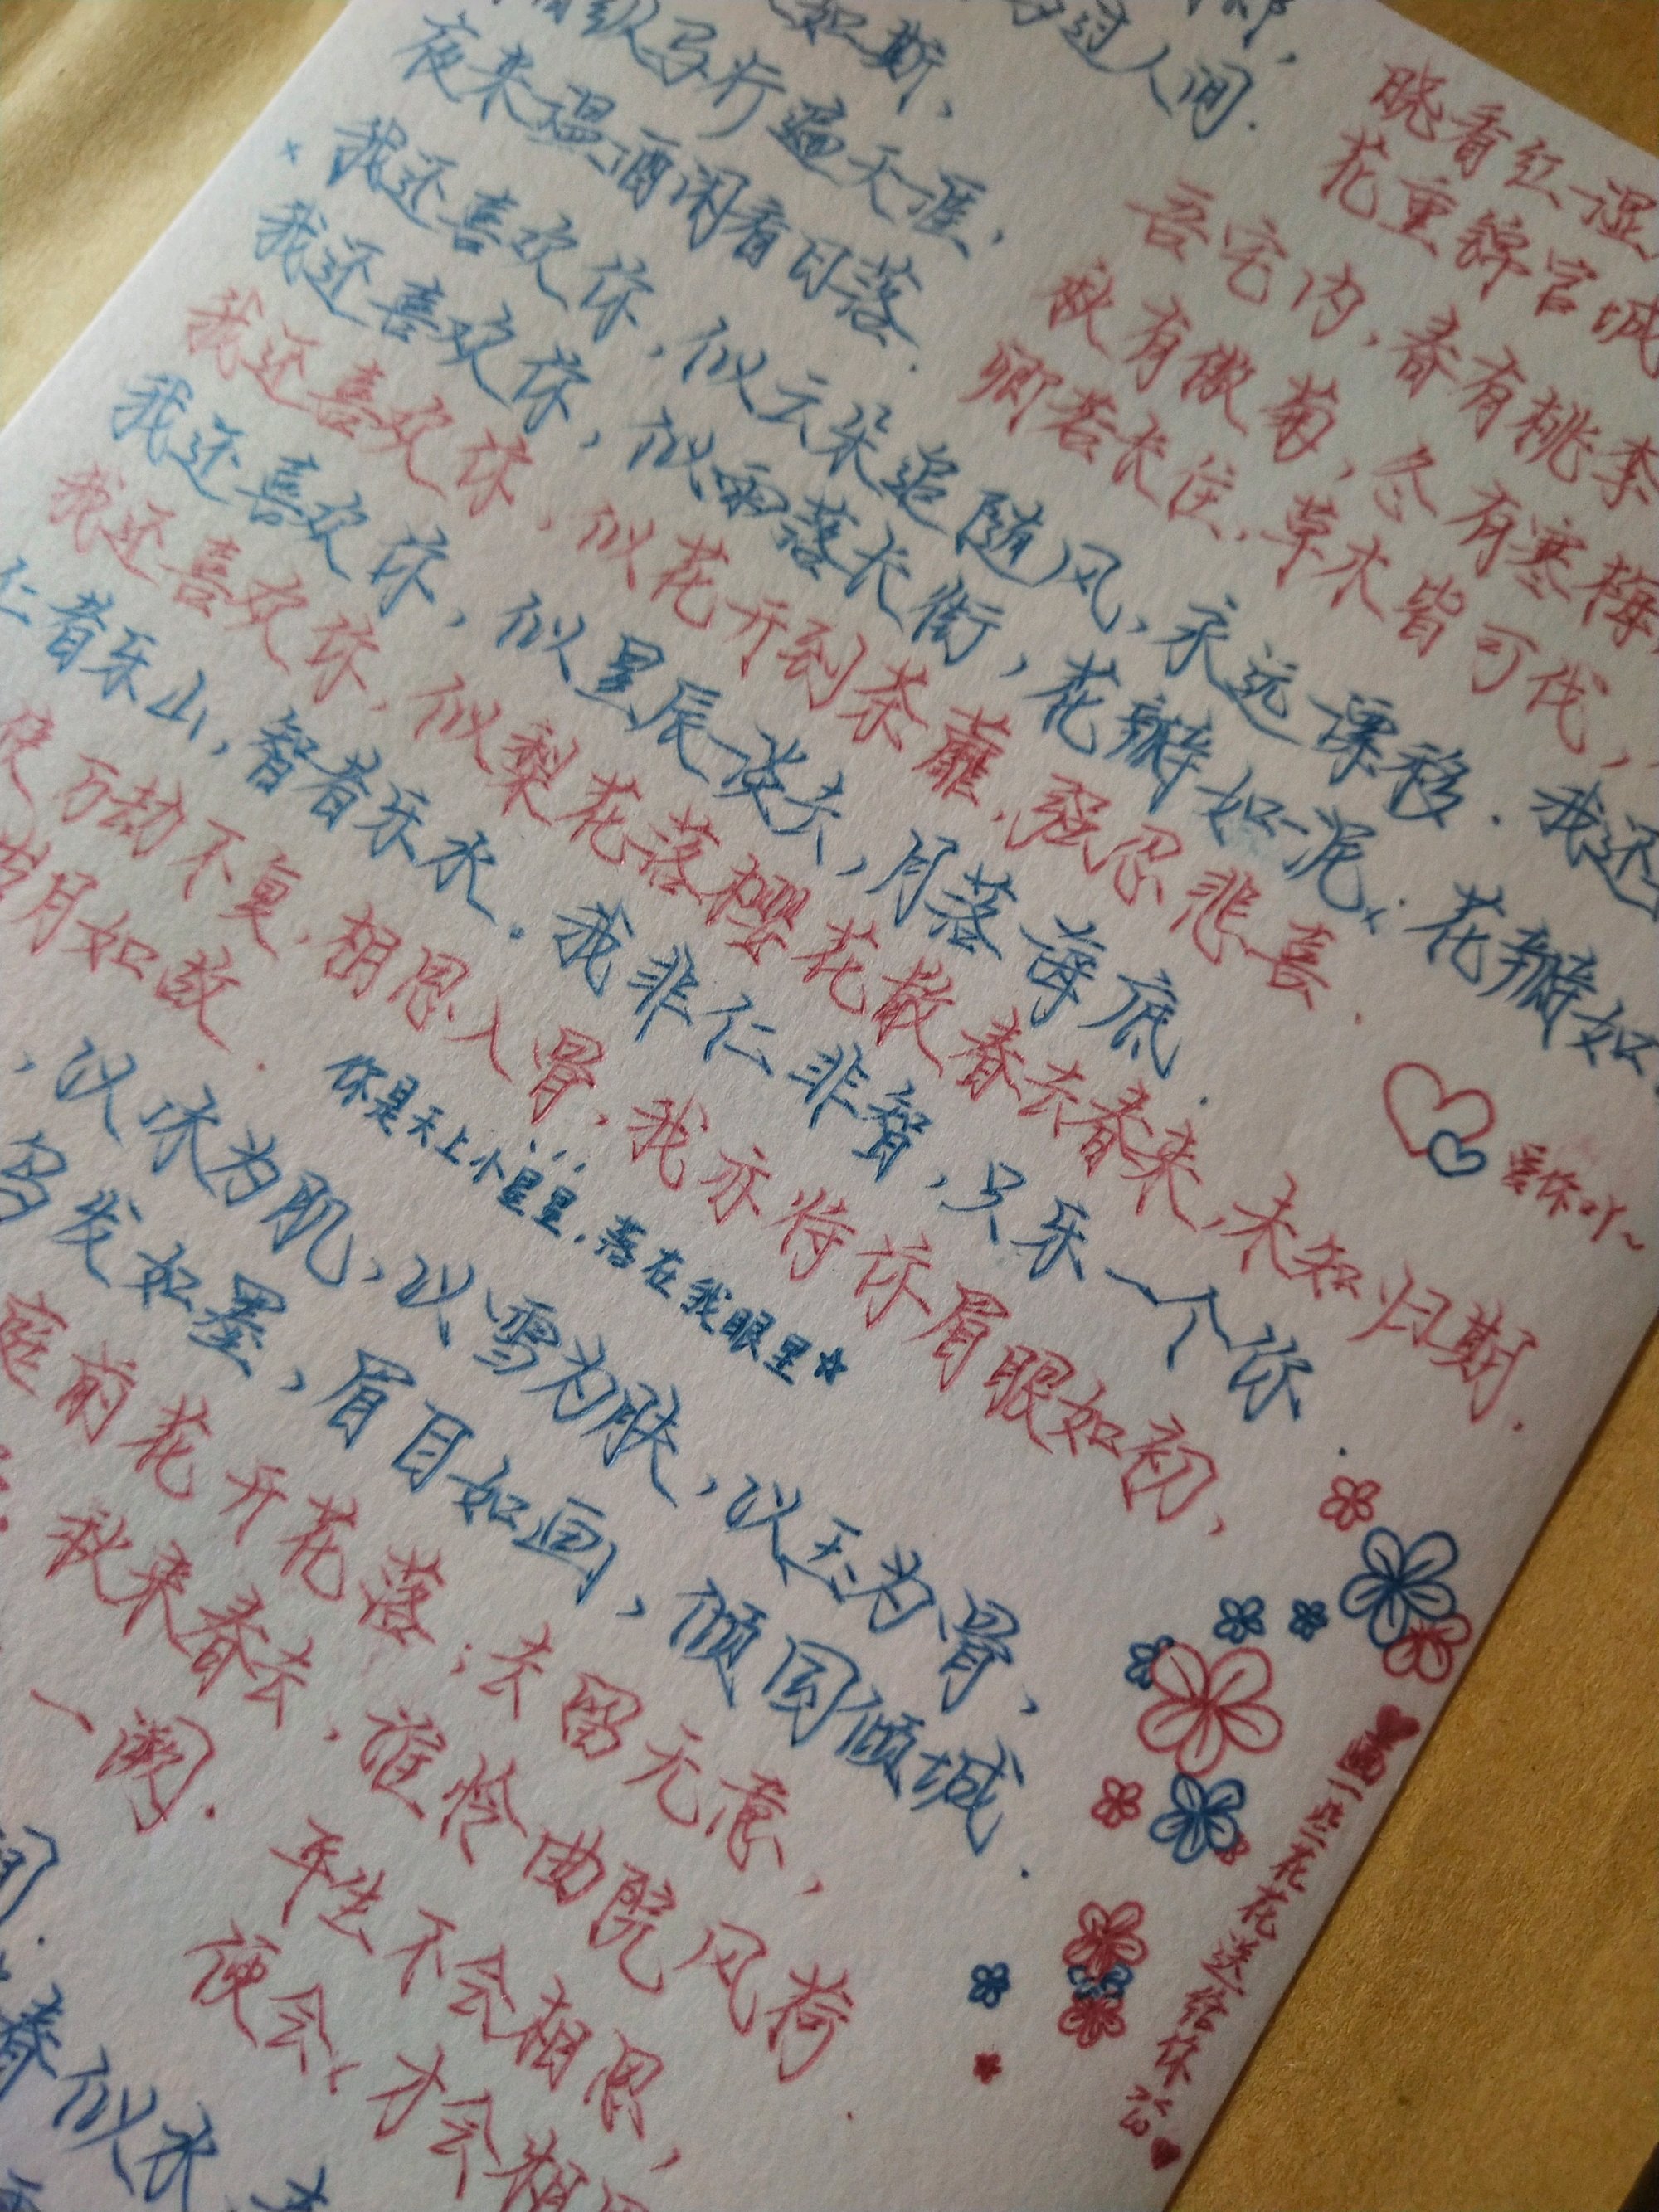 过人间.
如斯,
纵马行遍天涯,
夜来温酒闲看日落.
晓看红湿
花重锦官城
吾宅内,春有桃李
秋有傲菊,冬有寒梅,
卿若长住,草木皆可伐,
我还喜欢你,似云朵追随风,永远漂移.我还
我还喜欢你,似雨落长街,花瓣如泥.花瓣如
我还喜欢你,似花开到荼蘼,强忍悲喜.
我还喜欢你,似星辰谈去,月落海底.
我还喜欢你,似梨花落樱花散春去春来,未知归期.
爱你吖~
仁者乐山,智者乐水.我非仁非智,只乐一个你.
万劫不复,相思入骨,我亦待你眉眼如初,
岁月如故.
你是天上小星星,落在我眼里☆
,以冰为肌,以雪为肤,以玉为骨,
发如墨,眉目如画,倾国倾城.
庭前花开花落;去留无意,
秋来春去,谁怜曲院风荷
一阙.
平生不会相思,
便会,才会相思
春似水,
画一些花花送给你